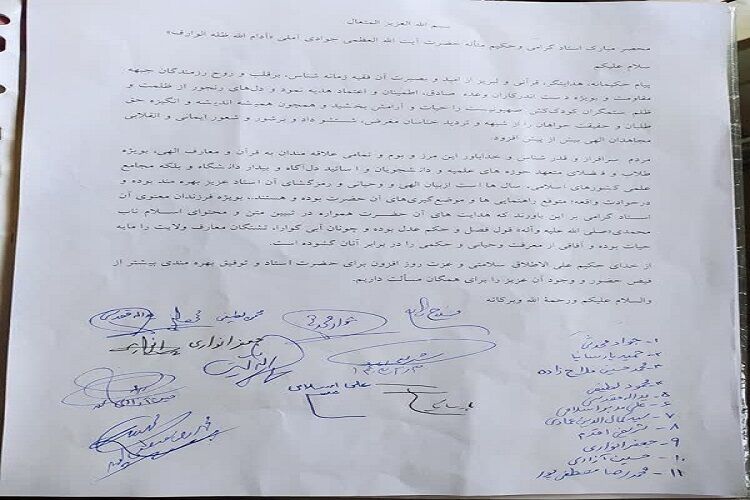 بسم الله العزیز المتعال
محضر مبارک استاد گرامی وحکیم متأله حضرت آیت الله العظمی جوادی آملی «أدام الله ظله الوارف»
سلام علیکم
پیام حکیمانه، هدایتگر، قرآنی و لبریز از امید و بصیرت آن فقیه زمانه شناس، برقلب و روح رزمندگان جبهه
مقاومت و بویژه دست اندرکاران وعده صادق، اطمینان و اعتماد هدیه نمود و دل‌های رنجور از ظلمت و
ظلم ستمگران کودک‌کش صهیونیست را حیات و آرامش بخشید و همچون همیشه اندیشه و انگیزه حق
طلبان و حقیقت خواهان را از شبهه و تردید خناسان مغرض، شستشو داد و برشور و شعور ایمانی و انقلابی
مجاهدان الهی بیش از پیش افزود.
مردم سرافراز و قدر شناس و خداباور این مرز و بوم و تمامی علاقه مندان به قرآن و معارف الهی، بویژه
طلاب و فضلای متعهد حوزه های علمیه و دانشجویان و اساتید دل‌آگاه و بیدار دانشگاه و بلکه مجامع
علمی کشورهای اسلامی، سال ها است ازبیان الهی و وحیانی و رمزگشای آن استاد عزیز بهره مند بوده و
درحوادث واقعه؛ متوقع راهنمایی ها و موضع‌گیری‌های آن حضرت بوده و هستند.، بویژه فرزندان معنوی آن
استاد گرامی بر این باورند که هدایت های آن حضرت همواره در تبیین متن و محتوای اسلام ناب
محمدی(صلی الله علیه و آله)، قول فصل و حکم عدل بوده و چونان آبی گوارا، تشنگان معارف ولایت را مایه
حیات بوده و آفاقی از معرفت وحیانی و حکمی را در برابر آنان گشوده است.
از خدای حکیم علی الاطلاق سلامتی و عزت روز افزون برای حضرت استاد و توفیق بهره مندی بیشتر از
فیض حضور و وجود آن عزیز را برای همگان مسألت داریم.
والسلام علیکم ورحمة الله وبرکاته
محمود لطیفی
جعفر انواری
علی اسلامی
۱- جواد محدثی
۲- حمید پارسانیا
۳- محمد حسین فلاح زاده
۴- محمود لطیفی
۵- یداله مقدسی
۶- علی مدبر اسلامی
۷- سید کمال الدین عمادی
۸- شریفی اقدم
۹- جعفر انواری
۱۰- حسین آزادی
۱۱- محمد رضا مصطفی پور